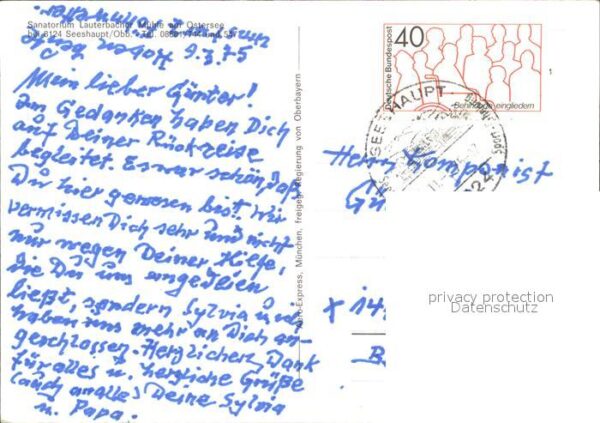 Sanatorium Lauterbacher Mühle am Ostersee
bei 8124 Seeshaupt/Obb. · Tel. 08801/744 und 557
9.3.75
Mein lieber Günter!
In Gedanken haben Dich
auf Deiner Rückreise
begleitet. Es war schön, daß
Du hier gewesen bist! Wir
vermissen Dich sehr und nicht
nur wegen Deiner Hilfe,
die Du uns angedeihen
ließt, sondern Sylvia u. ich
haben uns mehr an Dich an-
geschlossen. Herzlichen Dank
für alles u. herzliche Grüße
(auch an alle) Deine Sylvia
u. Papa.
Aero-Express, München, freigeg. Regierung von Oberbayern
40
Deutsche Bundespost
Behinderte eingliedern
1
SEESHAUPT
Herrn Komponist
Gü
privacy protection
Datenschutz
x 14
B